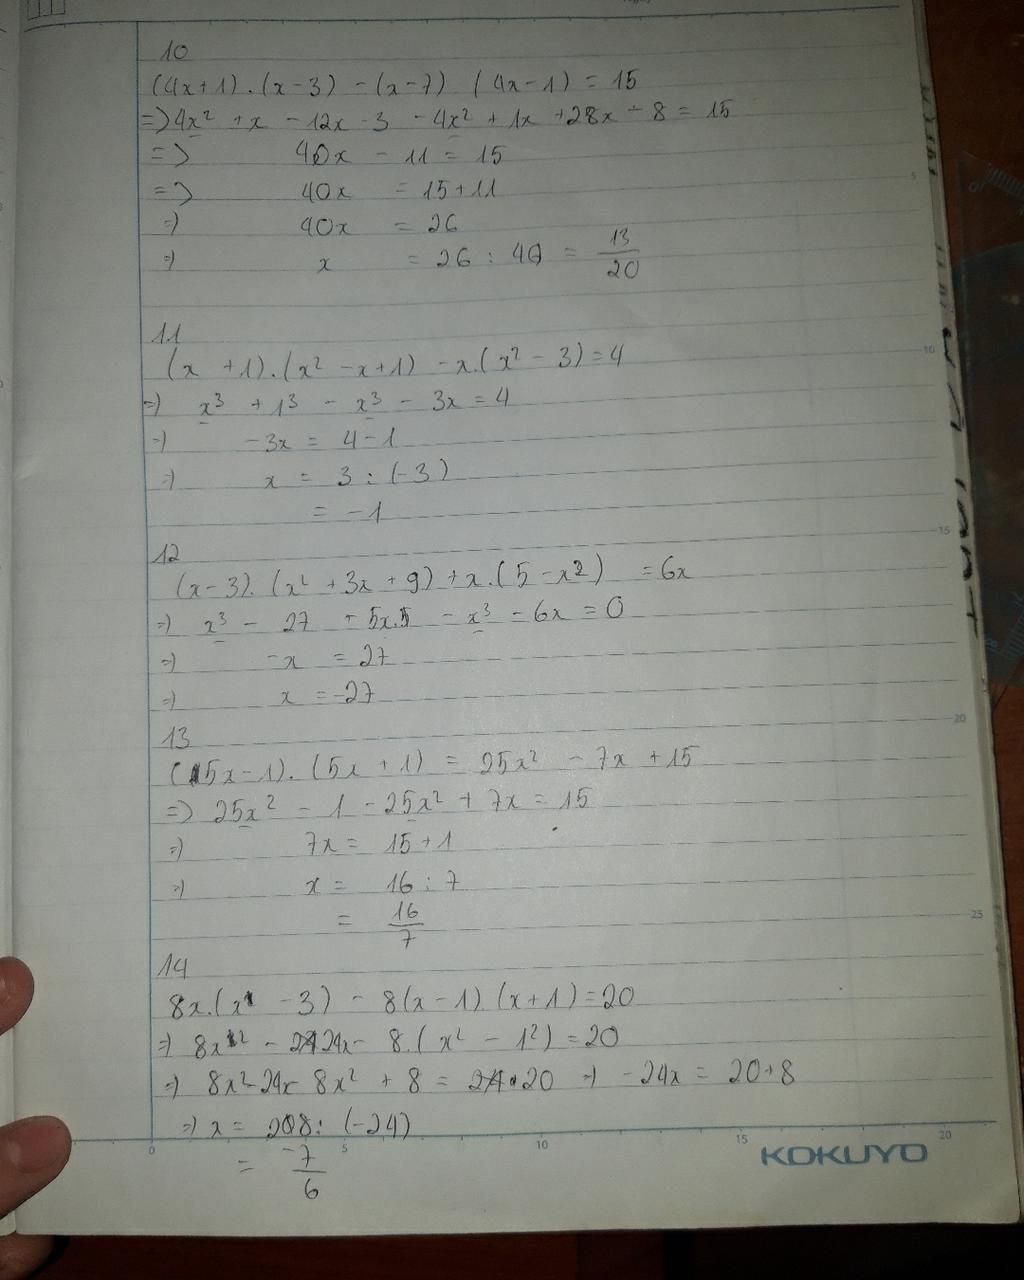 10
(4x+1).(x-3) - (x-7) (4x-1) = 15
=> 4x² + x - 12x - 3 - 4x² + 1x + 28x - 8 = 15
=> 40x - 11 = 15
=> 40x = 15+11
=> 40x = 26
=> x = 26 : 40 = 13/20
11
(x +1).(x² - x+1) - x.(x² - 3) = 4
=> x³ + 1³ - x³ - 3x = 4
=> -3x = 4-1
=> x = 3 : (-3)
= -1
12
(x-3). (x² + 3x + 9) + x.(5 - x²) = 6x
=> x³ - 27 - x³ - 6x = 0
=> -x = 27
=> x = -27
13
(5x-1). (5x + 1) = 25x² - 7x + 15
=> 25x² - 1 - 25x² + 7x = 15
=> 7x = 15+1
=> x = 16 : 7
= 16/7
14
8x.(x - 3) - 8(x-1) (x+1) = 20
=> 8x² - 24x - 8.(x² - 1²) = 20
=> 8x² - 24x - 8x² + 8 = 20 => -24x = 20+8
=> x = 28 : (-24)
= -7/6
0 5 10 15 20
5
10
15
20
25
KOKUYO